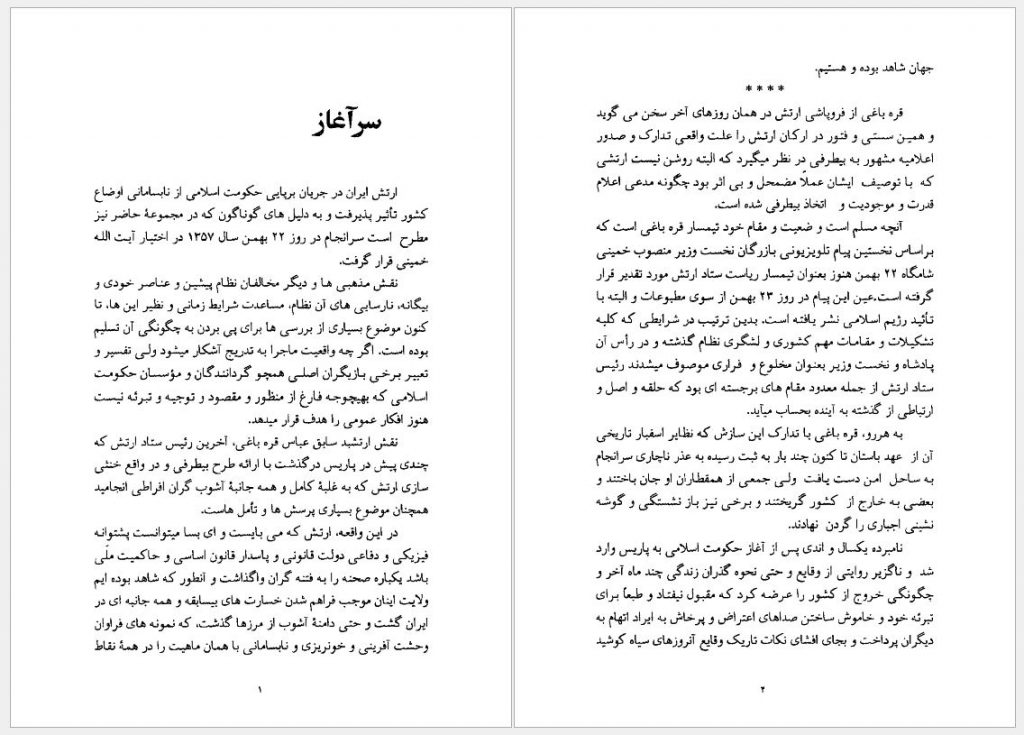 سرآغاز
ارتش ایران در جریان برپایی حکومت اسلامی از نابسامانی اوضاع
کشور تأثیر پذیرفت و به دلیل های گوناگون که در مجموعهٔ حاضر نیز
مطرح است سرانجام در روز ۲۲ بهمن سال ۱۳۵۷ در اختیار آیت الله
خمینی قرار گرفت.
نقش مذهبی ها و دیگر مخالفان نظام پیشین و عناصر خودی و
بیگانه، نارسایی های آن نظام، مساعدت شرایط زمانی و نظیر این ها، تا
کنون موضوع بسیاری از بررسی ها برای پی بردن به چگونگی آن تسلیم
بوده است. اگر چه واقعیت ماجرا به تدریج آشکار میشود ولی تفسیر و
تعبیر برخی بازیگران اصلی همچو گردانندگان و مؤسسان حکومت
اسلامی که بهیچوجه فارغ از منظور و مقصود و توجیه و تبرئه نیست
هنوز افکار عمومی را هدف قرار میدهد.
نقش ارتشبد سابق عباس قره باغی، آخرین رئیس ستاد ارتش که
چندی پیش در پاریس درگذشت با ارائه طرح بیطرفی و در واقع خنثی
سازی ارتش که به غلبهٔ کامل و همه جانبهٔ آشوب گران افراطی انجامید
همچنان موضوع بسیاری پرسش ها و تأمل هاست.
در این واقعه، ارتش که می بایست و ای بسا میتوانست پشتوانه
فیزیکی و دفاعی دولت قانونی و پاسدار قانون اساسی و حاکمیت ملّی
باشد یکباره صحنه را به فتنه گران واگذاشت و آنطور که شاهد بوده ایم
ولایت اینان موجب فراهم شدن خسارت های بیسابقه و همه جانبه ای در
ایران گشت و حتی دامنهٔ آشوب از مرزها گذشت، که نمونه های فراوان
وحشت آفرینی و خونریزی و نابسامانی با همان ماهیت را در همهٔ نقاط
۱
جهان شاهد بوده و هستیم.
****
قره باغی از فروپاشی ارتش در همان روزهای آخر سخن می گوید
و همین سستی و فتور در ارکان ارتش را علت واقعی تدارک و صدور
اعلامیه مشهور به بیطرفی در نظر میگیرد که البته روشن نیست ارتشی
که با توصیف ایشان عملاً مضمحل و بی اثر بود چگونه مدعی اعلام
قدرت و موجودیت و اتخاذ بیطرفی شده است.
آنچه مسلم است و ضعیت و مقام خود تیمسار قره باغی است که
براساس نخستین پیام تلویزیونی بازرگان نخست وزیر منصوب خمینی
شامگاه ۲۲ بهمن هنوز بعنوان تیمسار ریاست ستاد ارتش مورد تقدیر قرار
گرفته است،عین این پیام در روز ۲۳ بهمن از سوی مطبوعات و البته با
تأئید رژیم اسلامی نشر یافته است. بدین ترتیب در شرایطی که کلیه
تشکیلات و مقامات مهم کشوری و لشگری نظام گذشته و در رأس آن
پادشاه و نخست وزیر بعنوان مخلوع و فراری موصوف میشدند رئیس
ستاد ارتش از جمله معدود مقام های برجسته ای بود که حلقه و اصل و
ارتباطی از گذشته به آینده بحساب میآید.
به هررو، قره باغی با تدارک این سازش که نظایر اسفبار تاریخی
آن از عهد باستان تا کنون چند بار به ثبت رسیده به عذر ناچاری سرانجام
به ساحل امن دست یافت ولی جمعی از همقطاران او جان باختند و
بعضی به خارج از کشور گریختند و برخی نیز باز نشستگی و گوشه
نشینی اجباری را گردن نهادند.
نامبرده یکسال و اندی پس از آغاز حکومت اسلامی به پاریس وارد
شد و ناگزیر روایتی از وقایع و حتی نحوه گذران زندگی چند ماه آخر و
چگونگی خروج از کشور را عرضه کرد که مقبول نیفتاد و طبعاً برای
تبرئه خود و خاموش ساختن صداهای اعتراض و پرخاش به ایراد اتهام به
دیگران پرداخت و بجای افشای نکات تاریک وقایع آنروزهای سیاه کوشید
۲